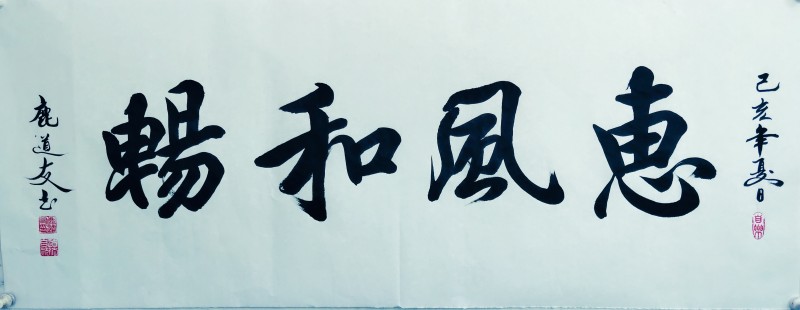 己亥年夏日
惠風和暢
鹿道友书